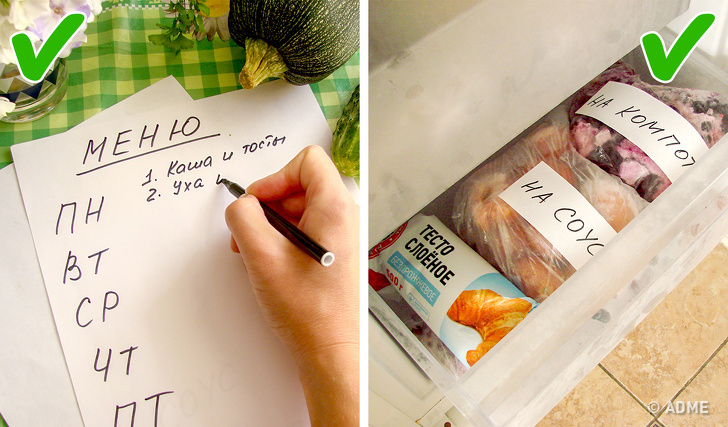 МЕНЮ
1. Каша и тосты
2. Уха и
ПН
ВТ
СР
ЧТ
ПТ
НА КОМПОТ
НА СОУС
ТЕСТО
СЛОЁНОЕ
БЕЗДРОЖЖЕВОЕ
500 г
© ADME